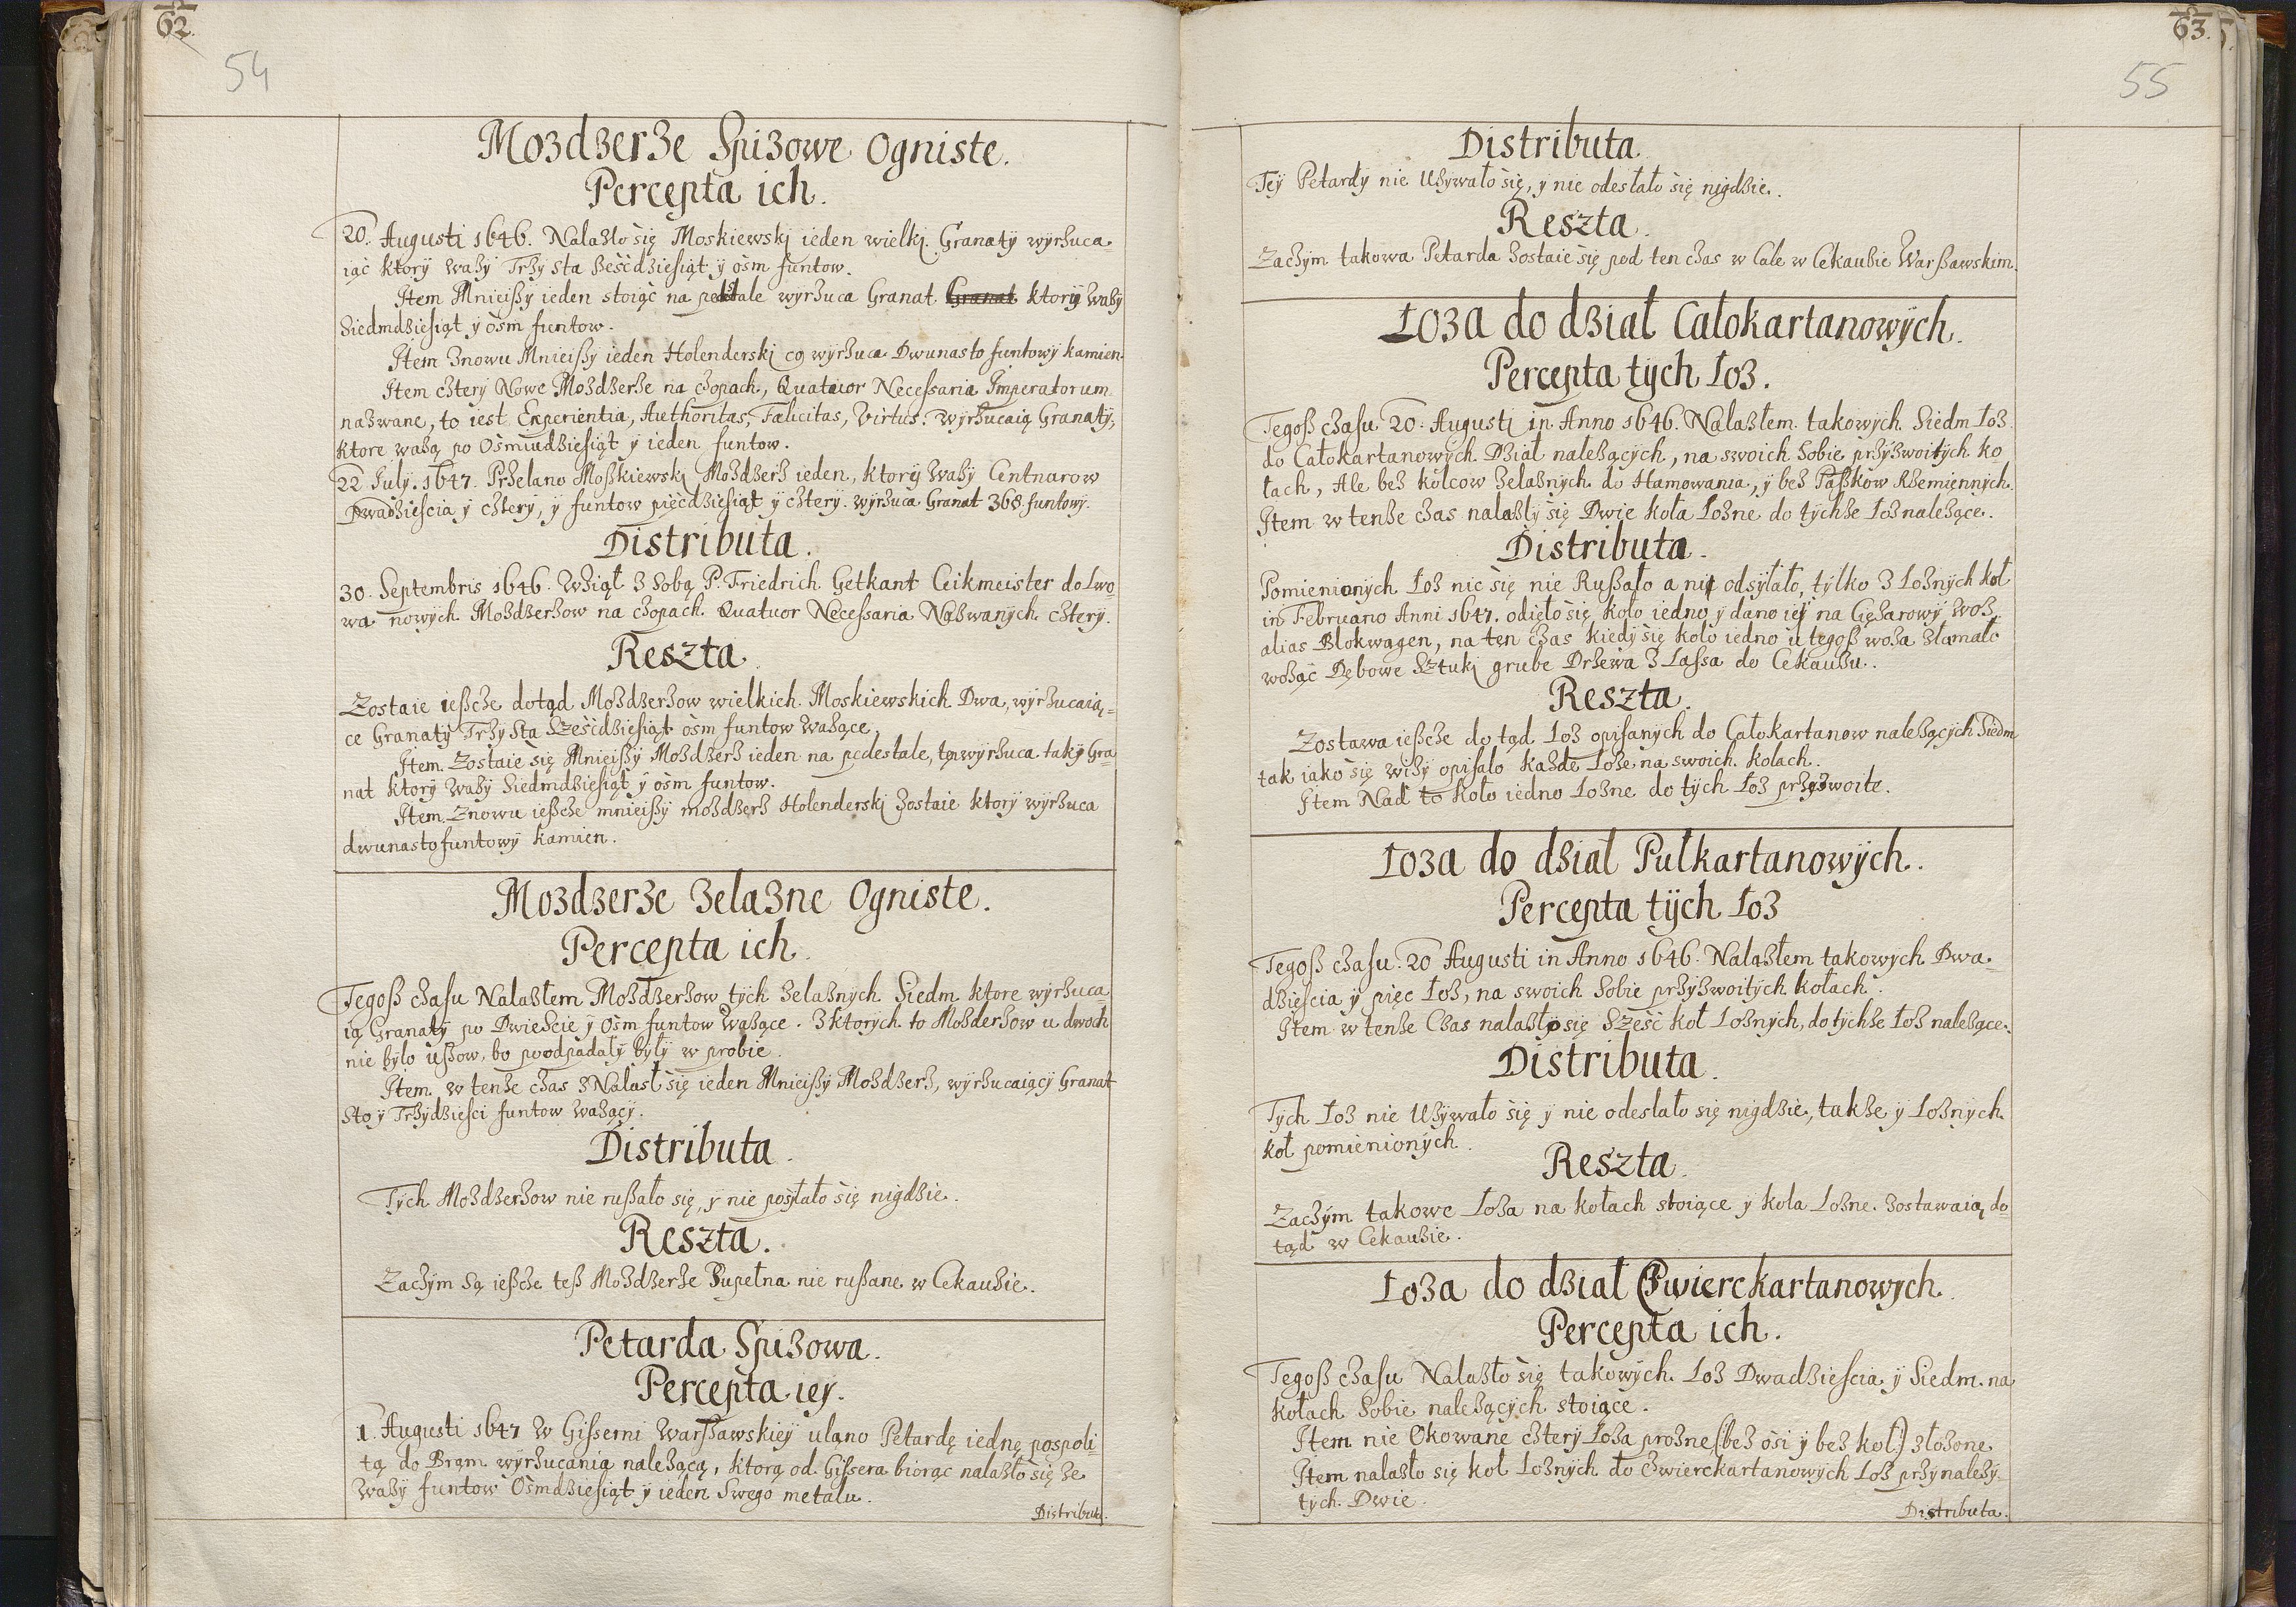 62.
54
Mozdzerze Spizowe Ogniste.
Percepta ich.
20. Augusti 1646. Nalazło się Moskiewskj ieden wielkj. Granaty wyrzuca-
iąc ktory wazy Trzy sta szescdziesiąt y osm funtow.
Item Mnieiszy ieden stoiąc na pedestale wyrzuca Granat Granat ktory wazy
Siedmdziesiąt y osm funtow.
Item znowu Mnieiszy ieden Holenderskj co wyrzuca Dwunasto funtowy kamien.
Item cztery Nowe Mozdzerze na czopach, Quatuor Necessaria Imperatorum
nazwane, to iest Experientia, Authoritas, Fælicitas, Virtus. wyrzucaią Granaty,
ktore wazą po Osmiudziesiąt y ieden funtow.
22 July. 1647. Przelano Moszkiewskj Mozdzerz ieden, ktory wazy Centnarow
Dwadziescia y cztery, y funtow pięcdziesiąt y cztery. wyrzuca Granat 368. funtowy.
Distributa.
30. Septembris 1646. Wziął z sobą P. Friedrich Getkant Ceikmeister do Lwo
wa nowych Mozdzerzow na czopach. Quatuor Necessaria Nazwanych cztery.
Reszta.
Zostaie ieszcze dotąd Mozdzerzow wielkich Moskiewskich Dwa, wyrzucaią-
ce Granaty Trzy sta Szescdziesiąt osm funtow wazące,
Item. Zostaie się Mnieiszy Mozdzerz ieden na pedestale, co wyrzuca taky Gra
nat ktory wazy Siedmdziesiąt y osm funtow.
Item. Znowu ieszcze mnieiszy mozdzerz Holenderskj zostaie ktory wyrzuca
dwunastofuntowy kamien.
Mozdzerze Zelazne Ogniste.
Percepta ich.
Tegosz czasu Nalazłem Mozdzerzow tych zelaznych Siedm ktore wyrzuca
ią Granaty po Dwiescie y Osm funtow wazące. z ktorych to Mozderzow u dwoch
nie było uszow, bo poodpadały były w probie.
Item. w tenze czas zNalasł się ieden Mnieiszy Mozdzerz, wyrzucaiący Granat
sto y Trzydziesci funtow wazący.
Distributa.
Tych Mozdzerzow nie ruszało się, y nie posłało się nigdzie.
Reszta.
Zaczym są ieszcze tesz Mozdzerze Zupełna nie ruszane w Cekauzie.
Petarda Spizowa.
Percepta iey.
1. Augusti 1647 w Gisserni Warszawskiey ulano Petardę iednę pospoli
tą do Bram wyrzucania nalezącą, ktorą od Gissera biorąc nalazło się ze
wazy funtow Osmdziesiąt y ieden Swego metalu.
Distributa.
63.
55
Distributa.
Tey Petardy nie Uzywało się, y nie odesłało się nigdzie.
Reszta.
Zaczym takowa Petarda zostaie się pod ten czas w Cale w Cekauzie Warszawskim.
Łoza do dział Całokartanowych.
Percepta tych Łoz.
Tegosz czasu 20. Augusti in Anno 1646. Nalazłem takowych Siedm Łoz
do Całokartanowych Dział nalezących, na swoich Sobie przyzwoitych ko
łach, Ale bez kolcow zelaznych do Hamowania, y bez Paszkow Rzemiennych.
Item w tenze czas nalazły się Dwie koła Łozne do tychze Łoz nalezące.
Distributa.
Pomienionych Łoz nic się nie Ruszało a ni odsyłało, tylko z Łoznych koł
in Februario Anni 1647. odięło się koło iedno y dano iey na Cęzarowy woz,
alias Blokwagen, na ten czas kiedy się koło iedno u tegosz woza złamało
woząc Dębowe Sztukj grube Drzewa z Lassa do Cekauzu.
Reszta.
Zostawa ieszcze do tąd Łoz opisanych do Całokartanow nalezących Siedm
tak iako się wizy opisało kazde Łoze na swoich kołach.
Item Nad to koło iedno Łozne do tych Łoz przyzwoite.
Łoza do dział Pułkartanowych.
Percepta tych Łoz
Tegosz czasu. 20 Augusti in Anno 1646. Nalazłem takowych Dwa-
dziescia y pięc Łoz, na swoich Sobie przyzwoitych kołach.
Item w tenze Czas nalazły się Szesc koł Łoznych, do tychze Łoz nalezące.
Distributa.
Tych Łoz nie Uzywało się y nie odesłało się nigdzie, takze y Łoznych
koł pomienionych.
Reszta.
Zaczym takowe Łoza na kołach stoiące y koła Łozne. zostawaią do
tąd w Cekauzie.
Łoza do dział Cwierckartanowych.
Percepta ich.
Tegosz czasu Nalazło się takowych Łoz Dwadziescia y Siedm. na
kołach Sobie nalezących stoiące.
Item nie Okowane cztery Łoza prozne (: bez osi y bez koł :) złozone
Item nalazło się koł Łoznych do Cwierckartanowych Łoz przynalezy-
tych. Dwie.
Distributa.